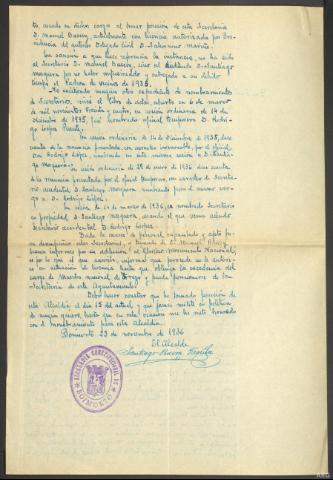 te acudo en dichos cargo al tener posesion de esta Secretaria
D. Manuel Baseiro, actualmente con licencia autorizada por
del anterior Delegado Civil D. Saturnino
La sancion a que hace referencia la instancia, no ha sido
al Secretario D. Manuel Baseiro, sino al D. Santiago
Maquera por no haber confeccionado y entregado a su debito
tiempo el Padron de vecinos de 1935.
No existiendo ningun otro expediente de nombramiento
de Secretario, visto el libro de actas, abierto en 6 de marzo
de mil novecientos treinta y cuatro, en sesion ordinaria de 14 de
diciembre de 1935, fué nombrado oficial temporero D. Rodri-
go Lopez
En sesion ordinaria de 14 de diciembre de 1935, dada
cuenta de la renuncia presentada, con caracter irrevocable, por el oficial
Don Rodrigo Lopez, nombrado en esta misma sesion a D. Santia-
go Maquera.
En sesion ordinaria de 29 de enero de 1936 dada cuenta
de la renuncia presentada por el oficial temporero, en caracter de Secreta-
rio accidental D. Santiago Maquera nombrando para el mismo car-
go a D. Rodrigo Lopez.
En sesion de 14 de marzo de 1936, es nombrado Secretario
en propiedad D. Santiago Maquera, cuando el que venia siendo
Secretario accidental D. Rodrigo Lopez.
Dada la escasez de personal capacitado y apto
para desempeñar estas Secretarias, y teniendo D. Manuel Baseiro
buenos informes por su adhesion al Glorioso Movimiento Nacional,
es por lo que el que suscribe, informa que procede se le autori-
ce en situacion de licencia hasta que obtenga la excedencia del
cargo de Maestro nacional de y pueda posesionarse de la
Secretaria de este Ayuntamiento.
Debo hacer constar que he tomado posesion de
esta Alcaldia el dia 13 del actual, y que jamas milité en politica
de ningun genero, hasta que en esta ocasion me he visto honrado
con el nombramiento para esta Alcaldia.
Boimorto 23 de noviembre de 1936
El Alcalde
Santiago
ALCALDIA CONSTITUCIONAL DE
BOIMORTO